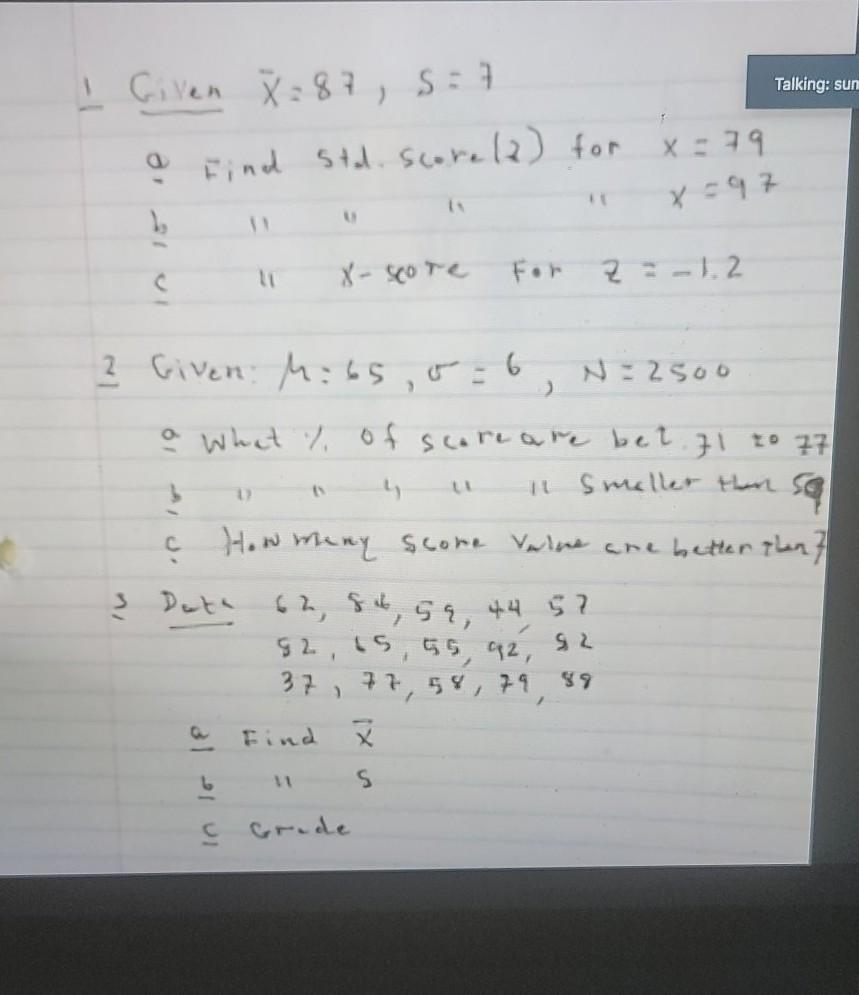 Talking: sun
1 Given x̄ = 87, S = 7
a Find Std. score (z) for x = 79
b " " " " x = 97
c " x-score For z = -1.2
2 Given: μ = 65, σ = 6, N = 2500
a What % of score are bet. 71 to 77
b " " " " " Smaller than 59
c How many score value are better than 7
3 Data 62, 59, 44, 57
82, 65, 55, 92, 82
37, 77, 58, 79, 89
a Find x̄
b " S
c Grade